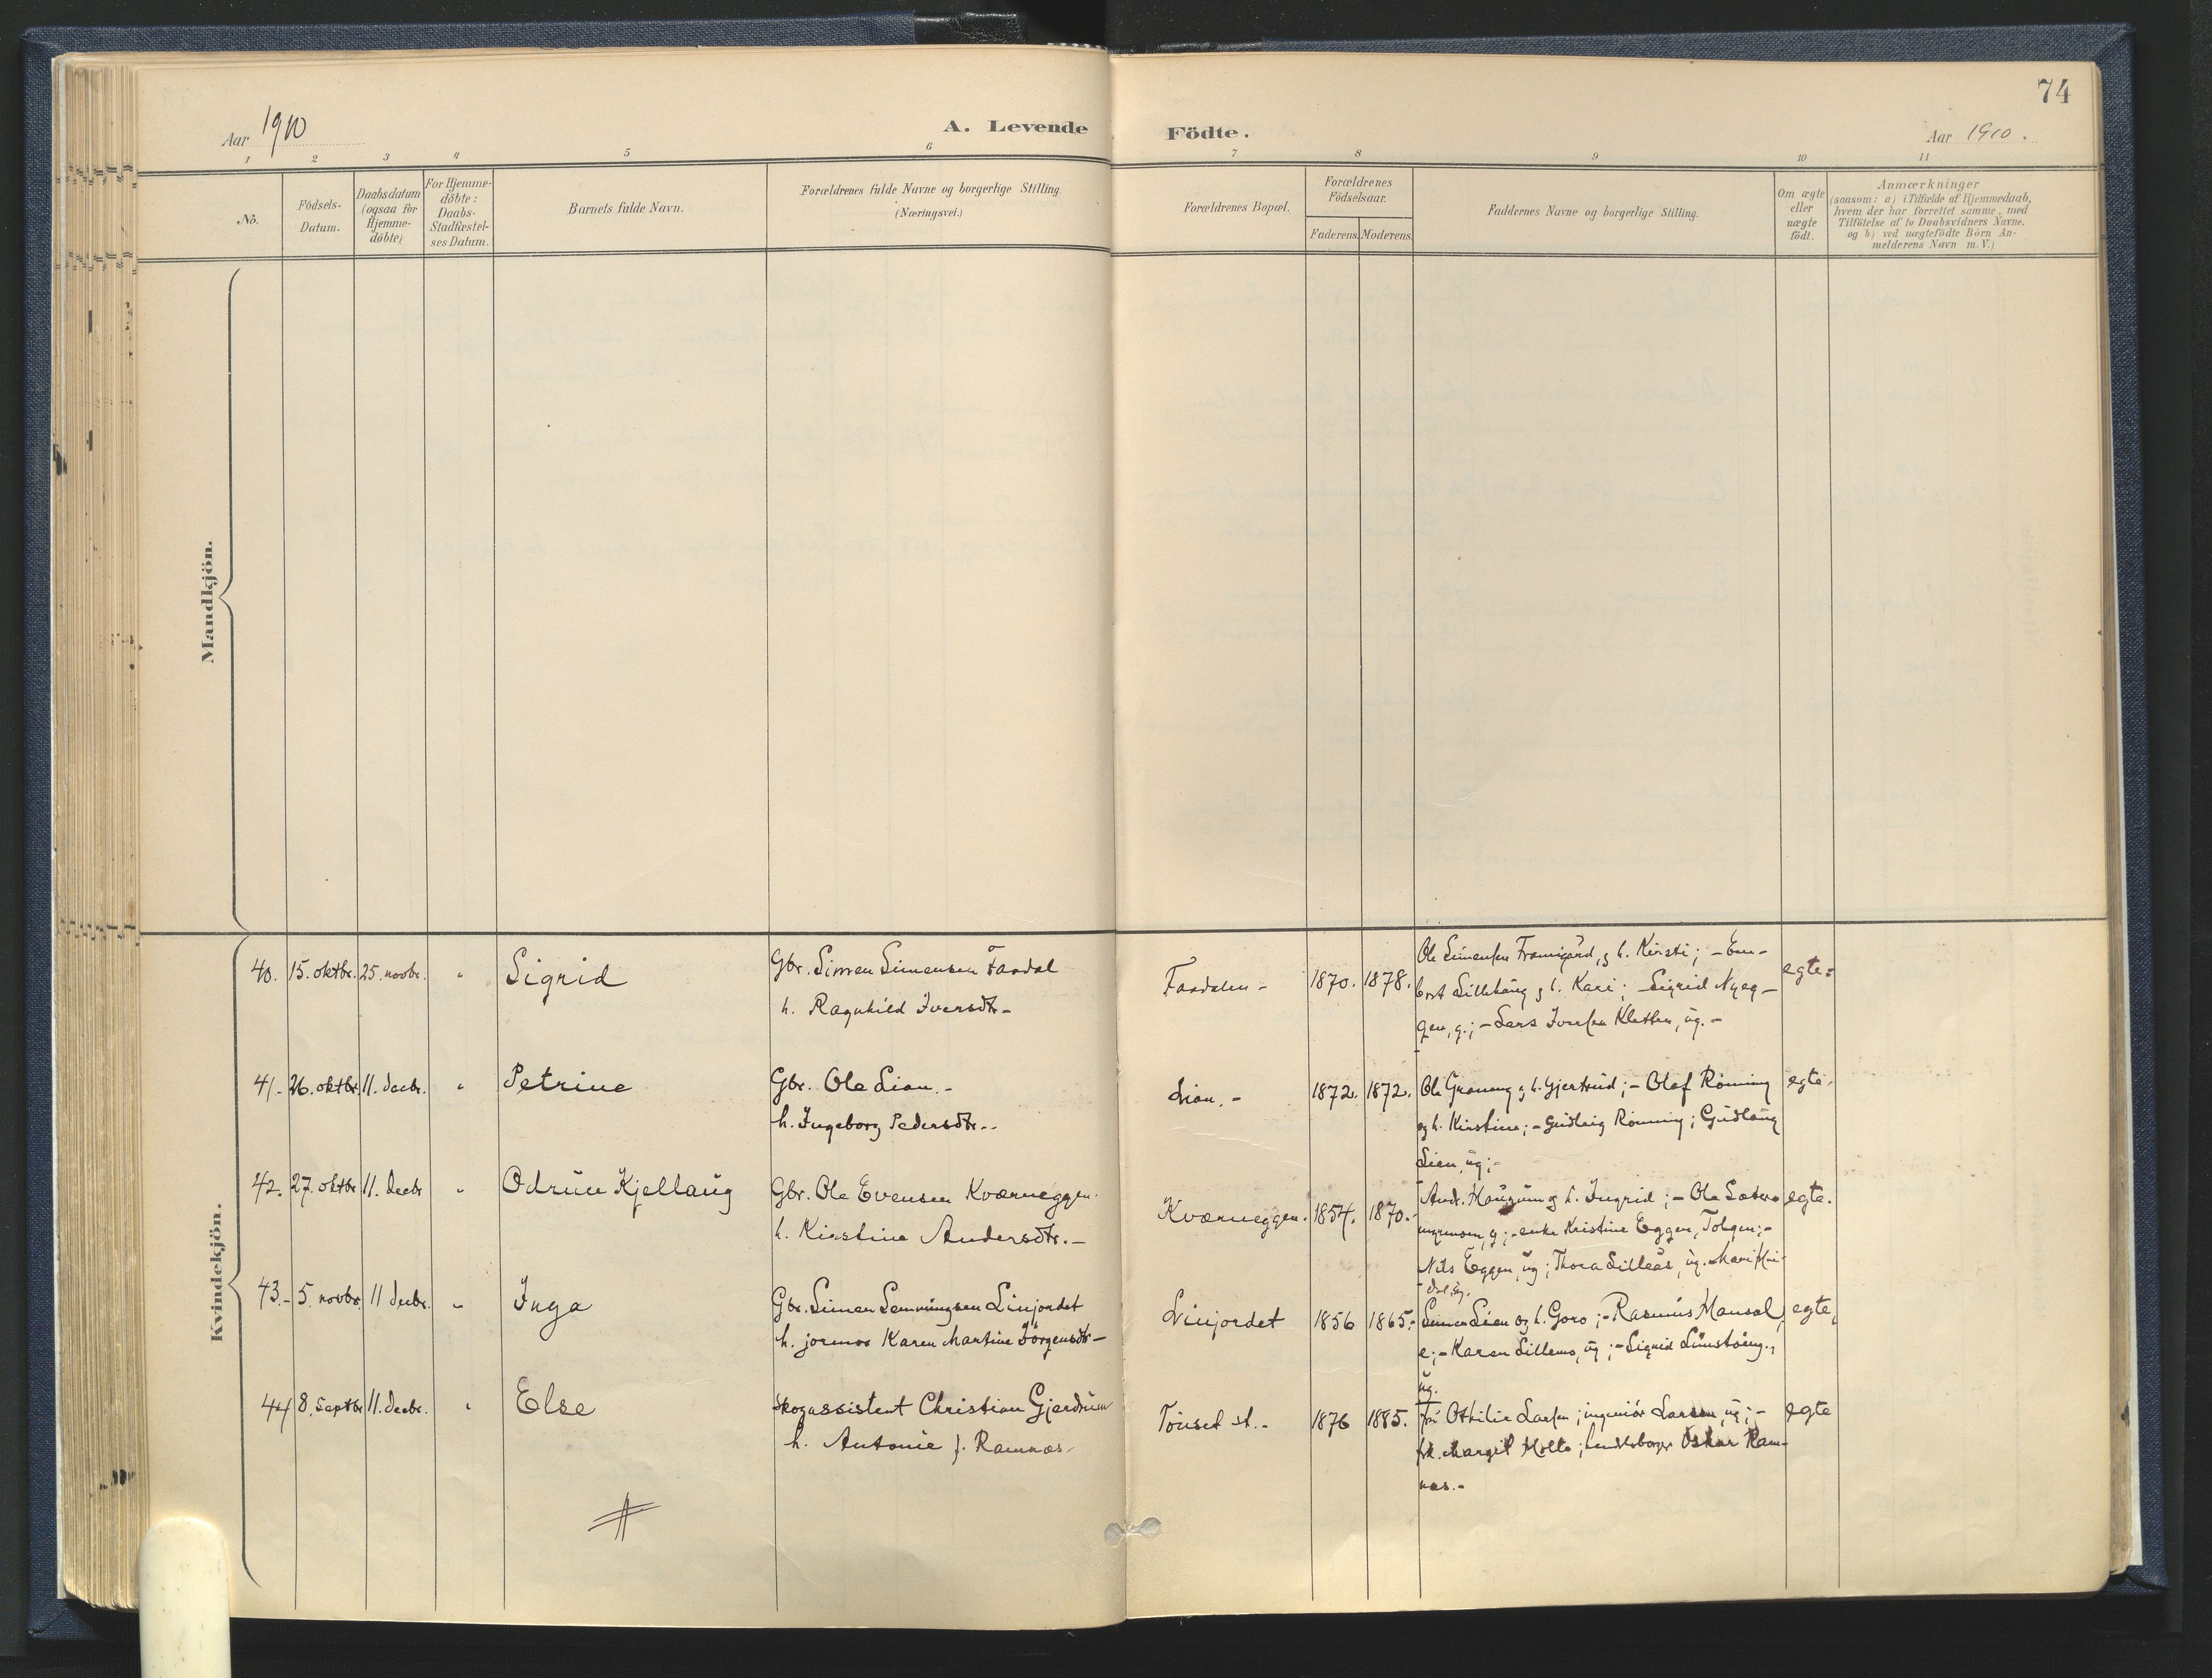 74
Aar 1910
A. Levende Födte.
Aar 1910.
1 2 3 4 5 6 7 8 9 10 11
No.
Födsels-
Datum.
Daabsdatum
(ogsaa for
Hjemme-
döbte)
For Hjemme-
döbte:
Daabs-
Stadfæstel-
ses Datum.
Barnets fulde Navn.
Forældrenes fulde Navne og borgerlige Stilling.
(Næringsvei.)
Forældrenes Bopæl.
Forældrenes
Födselsaar.
Faderens. Moderens.
Faddernes Navne og borgerlige Stilling.
Om ægte
eller
uægte
födt.
Anmærkninger
(saasom: a) i Tilfælde af Hjemmedaab,
hvem der har forrettet samme, med
Tilföielse af to Daabsvidners Navne.
og b) ved uægtefödte Börn An-
melderens Navn m. V.)
Mandkjön.
Kvindekjön.
40. 15. oktbr. 25. novbr. " Sigrid
Gbr. Simen Simensen Faadal
h. Ragnhild Iversdtr.-
Faadalen - 1870. 1878.
Ole Simensen Framigård, og h. Kirsti; - Em-
bret Lillehaug og h. Kari; - Sigrid Nyeg-
gen, g.; - Lars Iversen Kletten, ug. -
egte.
41.- 26. oktbr. 11. decbr. " Petrine
Gbr. Ole Lian. -
h. Ingeborg Pedersdtr. -
Lian. - 1872. 1872.
Ole og h. Gjertrud; - Olaf Rönning
og h. Kirstine; - Gudleig Rönning; Gudlaug
Lien, ug; -
egte.
42. 27. oktbr. 11. decbr " Odrun Kjellaug
Gbr. Ole Evensen Kværneggen.
h. Kirstine Andersdtr. -
Kværneggen. 1854. 1870.
Andr. Haugum og h. Ingrid; - Ole
g; - enke Kristine Eggen, Tolgen; -
Nils Eggen, ug; Thora Lilleås, ug. - Mari
egte.
43.- 5. novbr. 11 decbr. " Inga
Gbr. Simen Lemmingsen Linjordet
h. jormor Karen Martine Jörgensdtr -
Linjordet 1856 1865.-
Simen Lien og h. Goro; - Rasmus Mansal,
e; - Karen Lillemo, ug; - Sigrid
ug.
egte,
44 8. septbr 11. decbr. " Else
Skogassistent Christian Gjerdrum
h. Antonie f. Ramnæs.
Tönset st. - 1876 1885.
Fru Othilie Larsen; ingeniör Larsen, ug; -
frk. Margit Holte; handelsborger Oskar Ram-
næs. -
egte